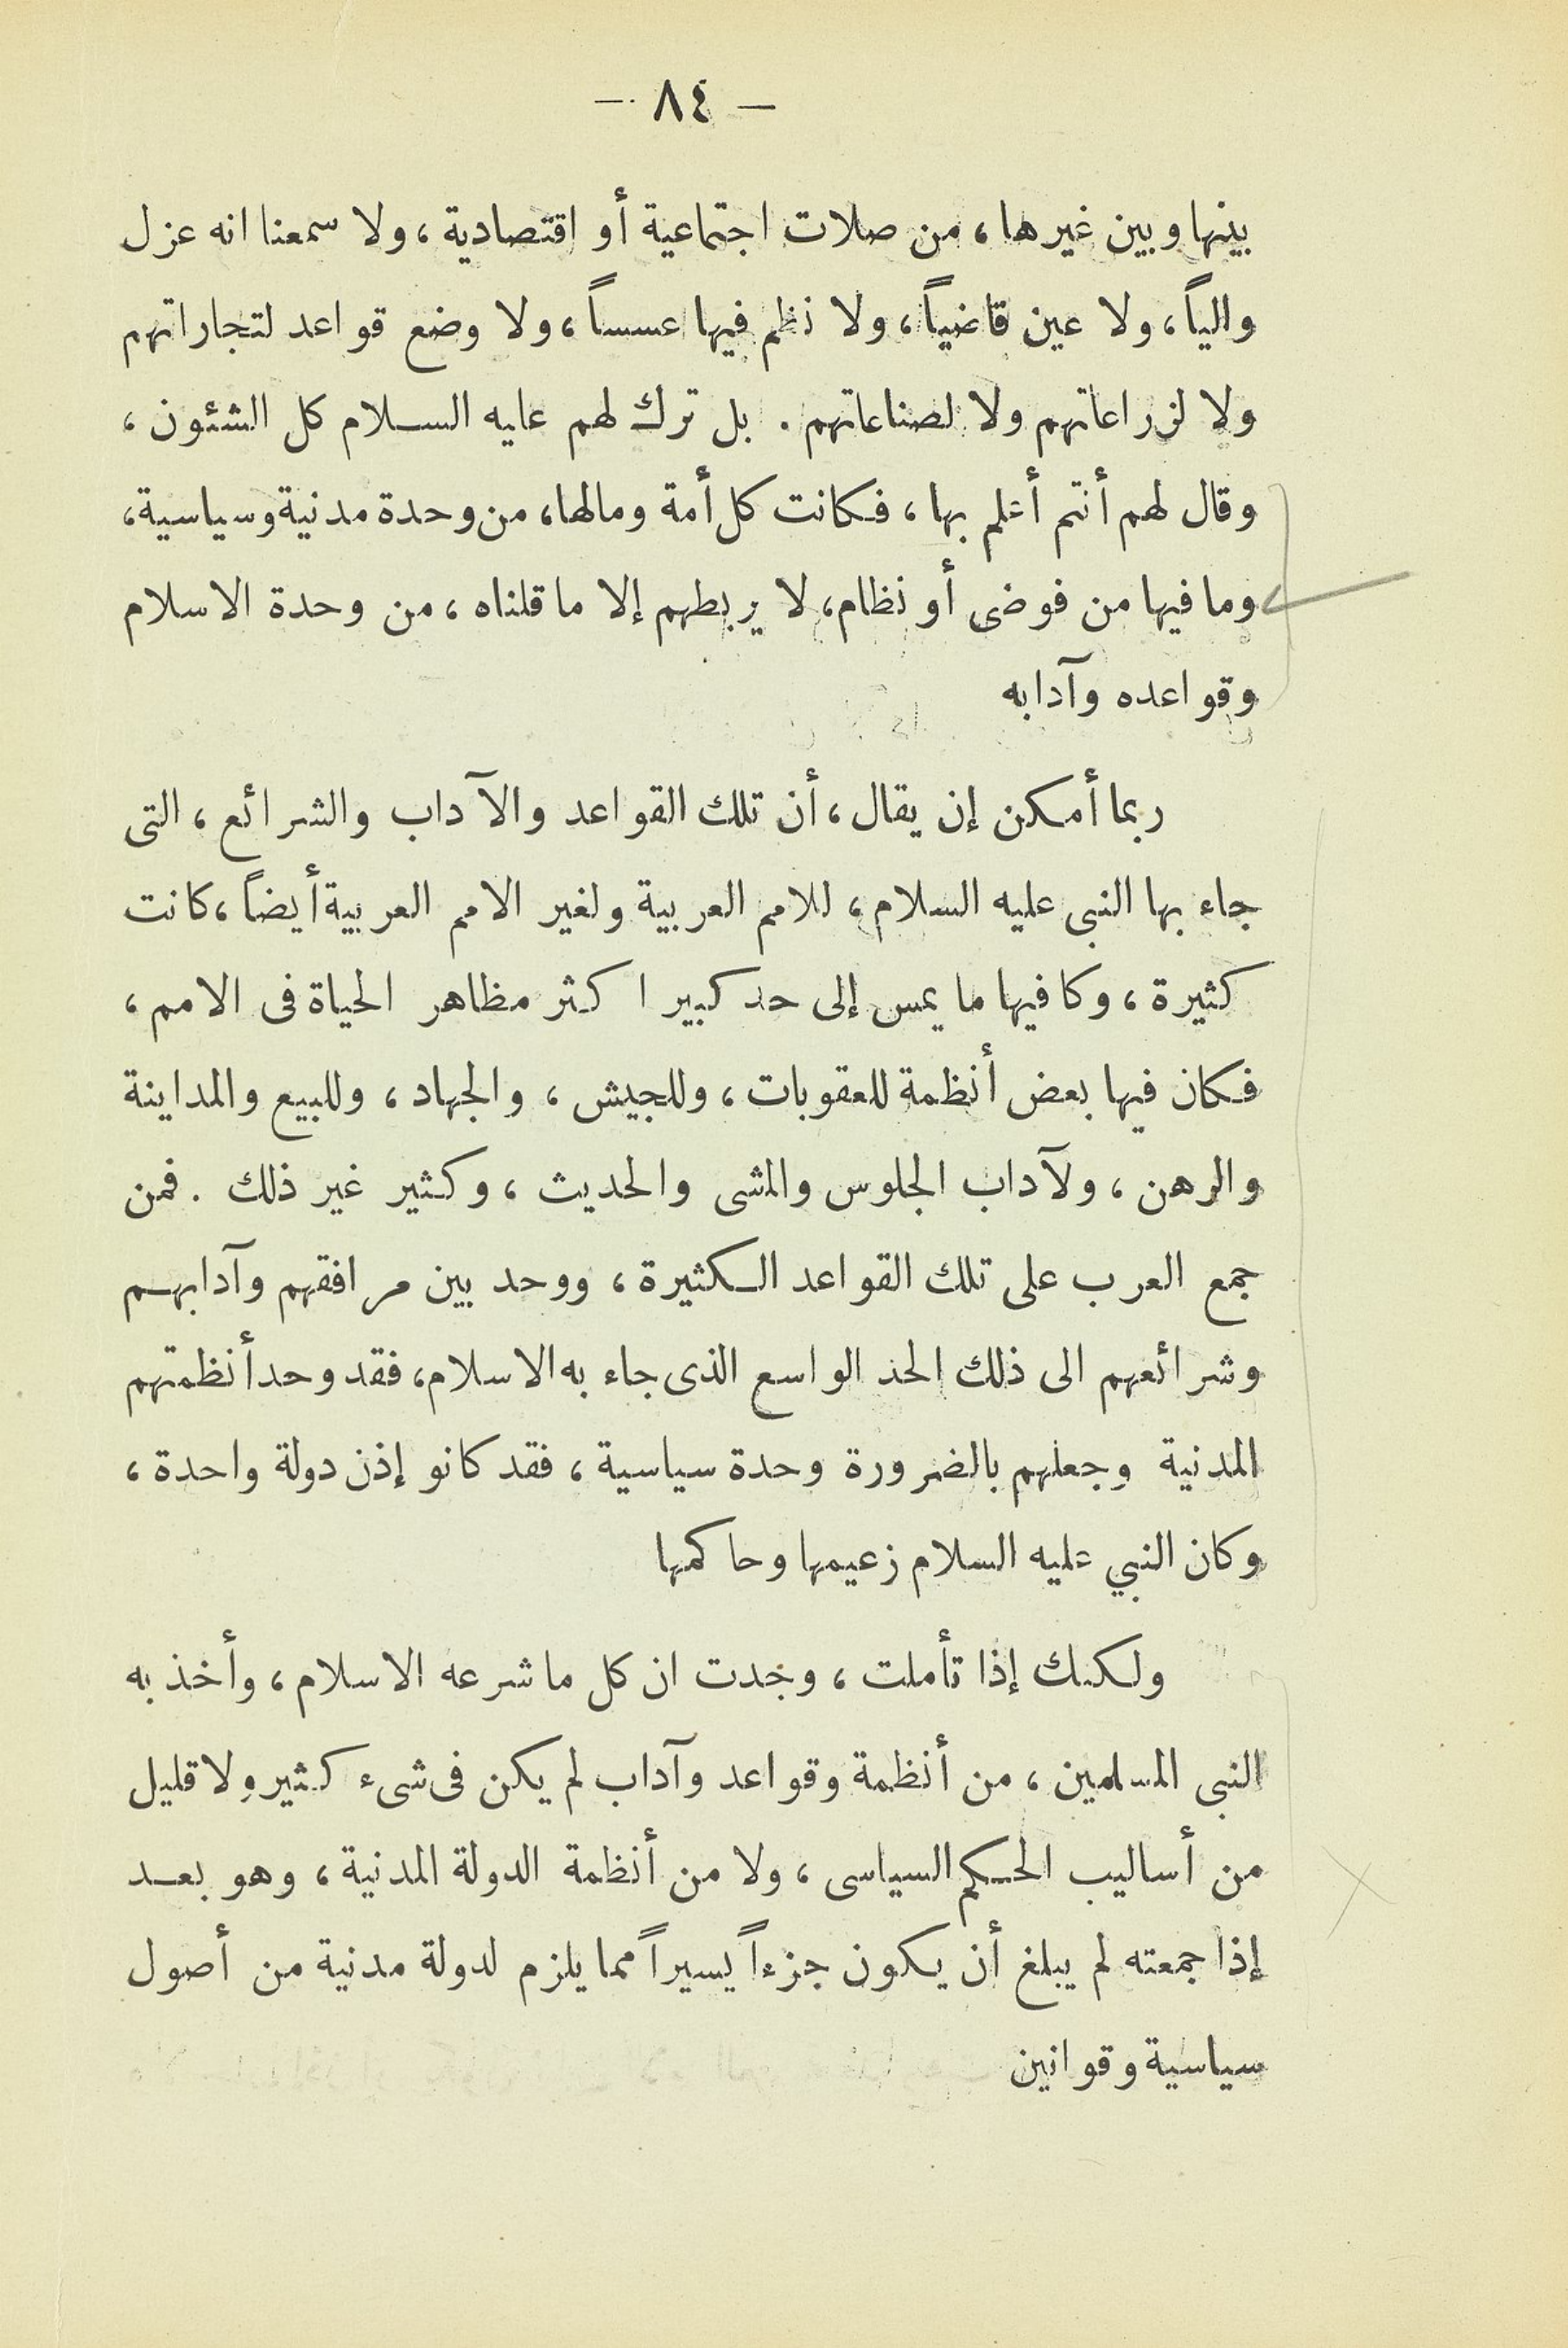 — ٨٤ —
بينها وبين غيرها، من صلات اجتماعية أو اقتصادية، ولا سمعنا انه عزل
والياً، ولا عين قاضياً، ولا نظم فيها عسساً، ولا وضع قواعد لتجاراتهم
ولا لزراعاتهم ولا لصناعاتهم. بل ترك لهم عليه السلام كل الشئون،
وقال لهم أنتم أعلم بها، فكانت كل أمة ومالها، من وحدة مدنية وسياسية،
وما فيها من فوضى أو نظام، لا يربطهم إلا ما قلناه، من وحدة الاسلام
وقواعده وآدابه
ربما أمكن إن يقال، أن تلك القواعد والآداب والشرائع، التى
جاء بها النبى عليه السلام، للامم العربية ولغير الامم العربية أيضاً، كانت
كثيرة، وكا فيها ما يمس إلى حد كبير اكثر مظاهر الحياة فى الامم،
فكان فيها بعض أنظمة للعقوبات، وللجيش، والجهاد، وللبيع والمداينة
والرهن، ولآداب الجلوس والمشى والحديث، وكثير غير ذلك. فمن
جمع العرب على تلك القواعد الكثيرة، ووحد بين مرافقهم وآدابهم
وشرائعهم الى ذلك الحد الواسع الذى جاء به الاسلام، فقد وحد أنظمتهم
المدنية وجعلهم بالضرورة وحدة سياسية، فقد كانو إذن دولة واحدة،
وكان النبي عليه السلام زعيمها وحاكمها
ولكنك إذا تأملت، وجدت ان كل ما شرعه الاسلام، وأخذ به
النبى المسلمين، من أنظمة وقواعد وآداب لم يكن فى شىء كثير ولا قليل
من أساليب الحكم السياسى، ولا من أنظمة الدولة المدنية، وهو بعد
إذا جمعته لم يبلغ أن يكون جزءاً يسيراً مما يلزم لدولة مدنية من أصول
سياسية وقوانين